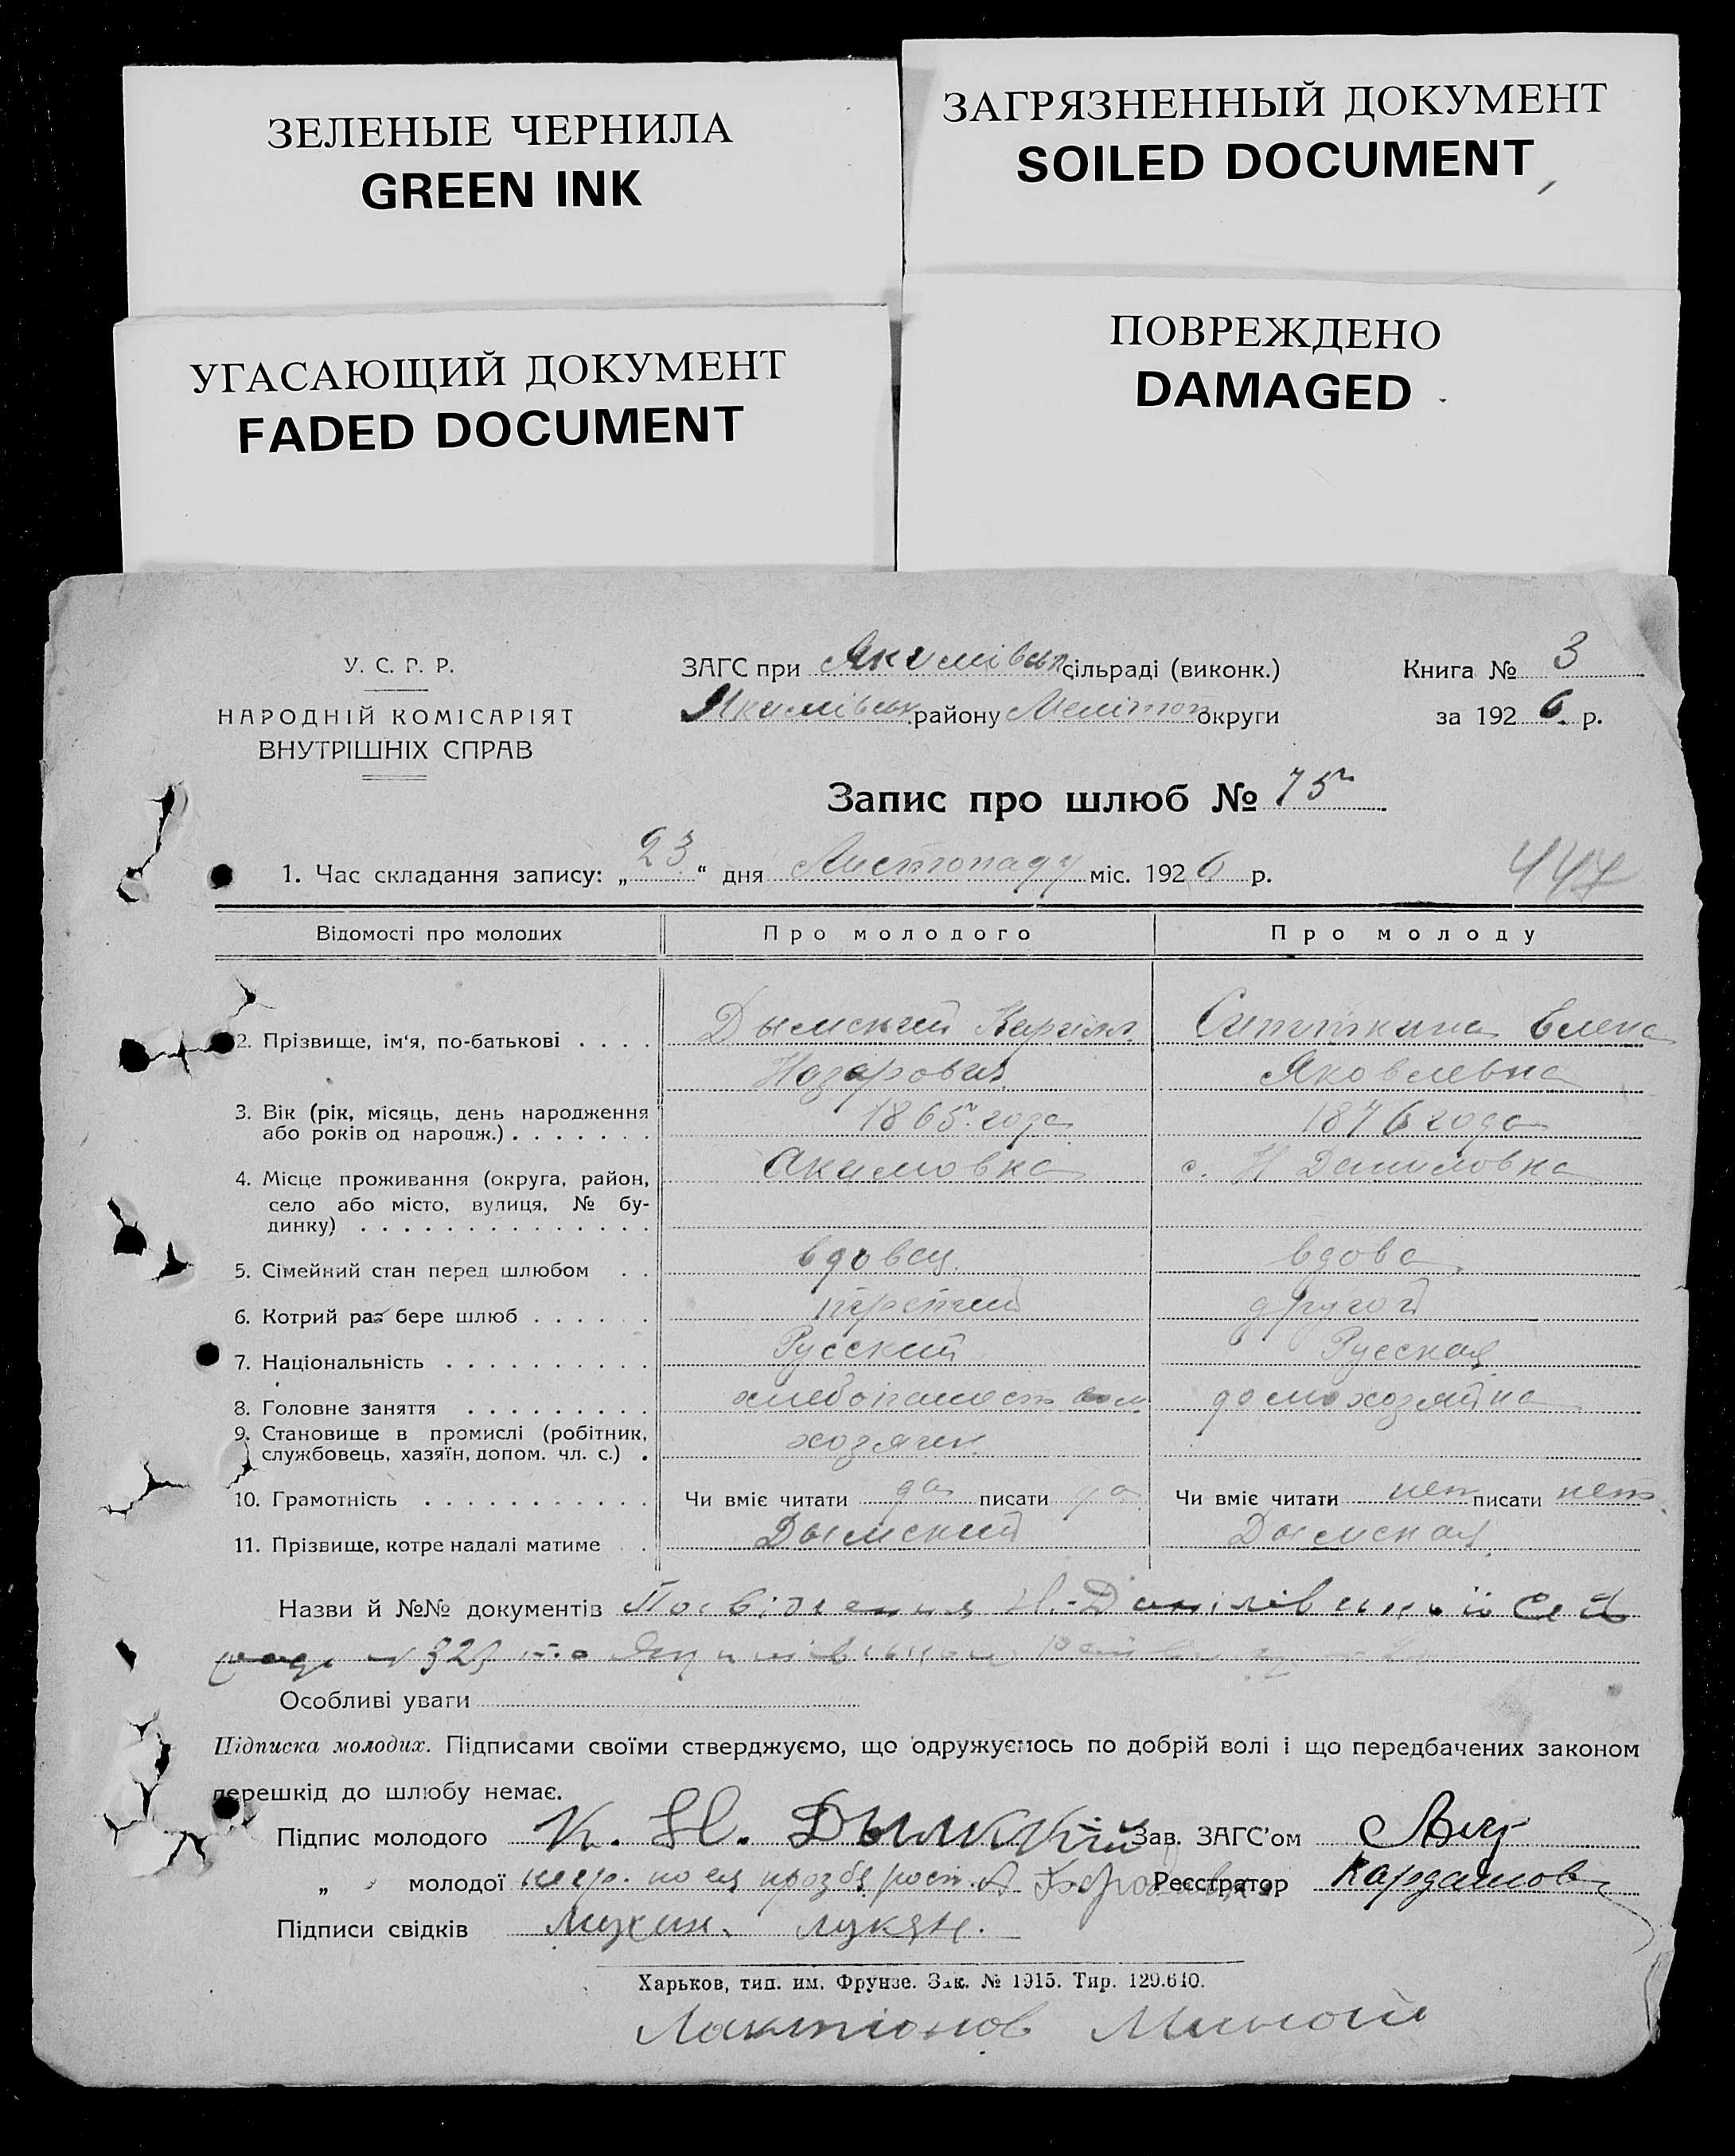 ЗЕЛЕНЫЕ ЧЕРНИЛА
GREEN INK
ЗАГРЯЗНЕННЫЙ ДОКУМЕНТ
SOILED DOCUMENT
УГАСАЮЩИЙ ДОКУМЕНТ
FADED DOCUMENT
ПОВРЕЖДЕНО
DAMAGED
У. С. Р. Р.
НАРОДНІЙ КОМІСАРІЯТ
ВНУТРІШНІХ СПРАВ
ЗАГС при Якимівськ сільраді (виконк.)
Якимівськ району Мелітоп округи
Книга № 3
за 1926 р.
Запис про шлюб № 75
1. Час складання запису: „23“ дня Листопаду міс. 1926 р.
447
Відомості про молодих Про молодого Про молоду
2. Прізвище, ім'я, по-батькові . . . . Дымский Кирилл Елена
Назарович Яковлевна
3. Вік (рік, місяць, день народження 1865 года 1876 года
або років од народж.) . . . . . . .
4. Місце проживання (округа, район, Акимовка с. Н Даниловка
село або місто, вулиця, № бу-
динку) . . . . . . . . . . . . . .
5. Сімейний стан перед шлюбом . . вдовец вдова
6. Котрий раз бере шлюб . . . . . . третий другой
7. Національність . . . . . . . . . . Русский Русская
8. Головне заняття . . . . . . . . . хлебопашест домохозяйка
9. Становище в промислі (робітник, хозяин
службовець, хазяїн, допом. чл. с.) .
10. Грамотність . . . . . . . . . . . Чи вміє читати да писати да Чи вміє читати нет писати нет
11. Прізвище, котре надалі матиме . . Дымский Дымская
Назви й №№ документів Посвідчення Н.-Данілівської
Особливі уваги
Підписка молодих. Підписами своїми стверджуємо, що одружуємось по добрій волі і що передбачених законом
перешкід до шлюбу немає.
Підпис молодого К. Н. Дымский Зав. ЗАГС'ом
„ молодої негр. по ея прозбя рост. Реєстратор Кардашов
Підписи свідків Мухин. лукян.
Харьков, тип. им. Фрунзе. Зак. № 1915. Тир. 129.610.
Лактіонов